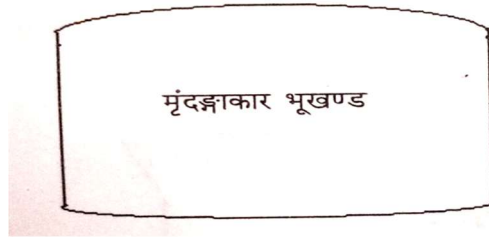 मृंदङ्गाकार भूखण्ड